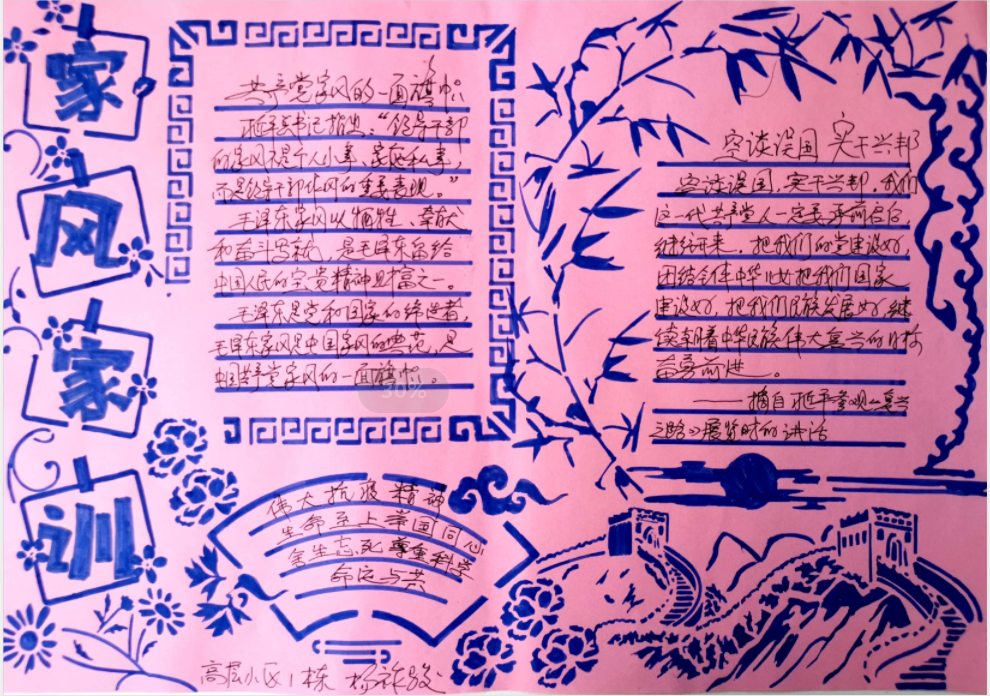 家
风
家
训
共产党家风的一面旗帜
习近平书记指出："领导干部
的家风不是个人小事、家庭私事，
而是领导干部作风的重要表现。"
毛泽东家风以牺牲、奉献
和奋斗为就，是毛泽东留给
中国人民的宝贵精神财富之一。
毛泽东是党和国家的缔造者，
毛泽东家风是中国家风的典范，是
中国共产党家风的一面旗帜。
30%
空谈误国 实干兴邦
空谈误国，实干兴邦。我们
这一代共产党人一定要承前启后
继往开来，把我们的党建设好，
团结全体中华儿女把我们国家
建设好，把我们民族发展好，继
续朝着中华民族伟大复兴的目标
奋勇前进。
——摘自习近平参观《复兴
之路》展览时的讲话
伟大抗疫精神
生命至上 举国同心
舍生忘死 尊重科学
命运与共
高层小区1栋 杨